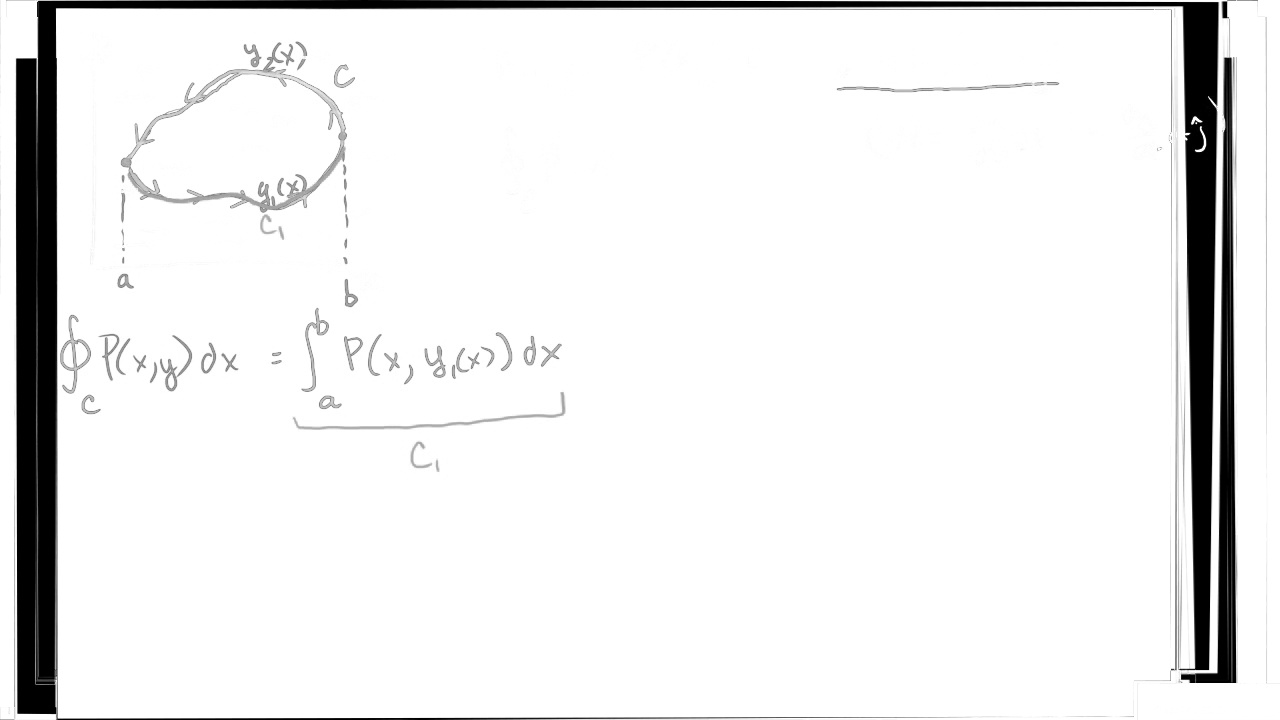 y₂(x)
C
ĵ
y₁(x)
C₁
a
b
∮_C P(x,y) dx = ∫_a^b P(x, y₁(x)) dx
C₁